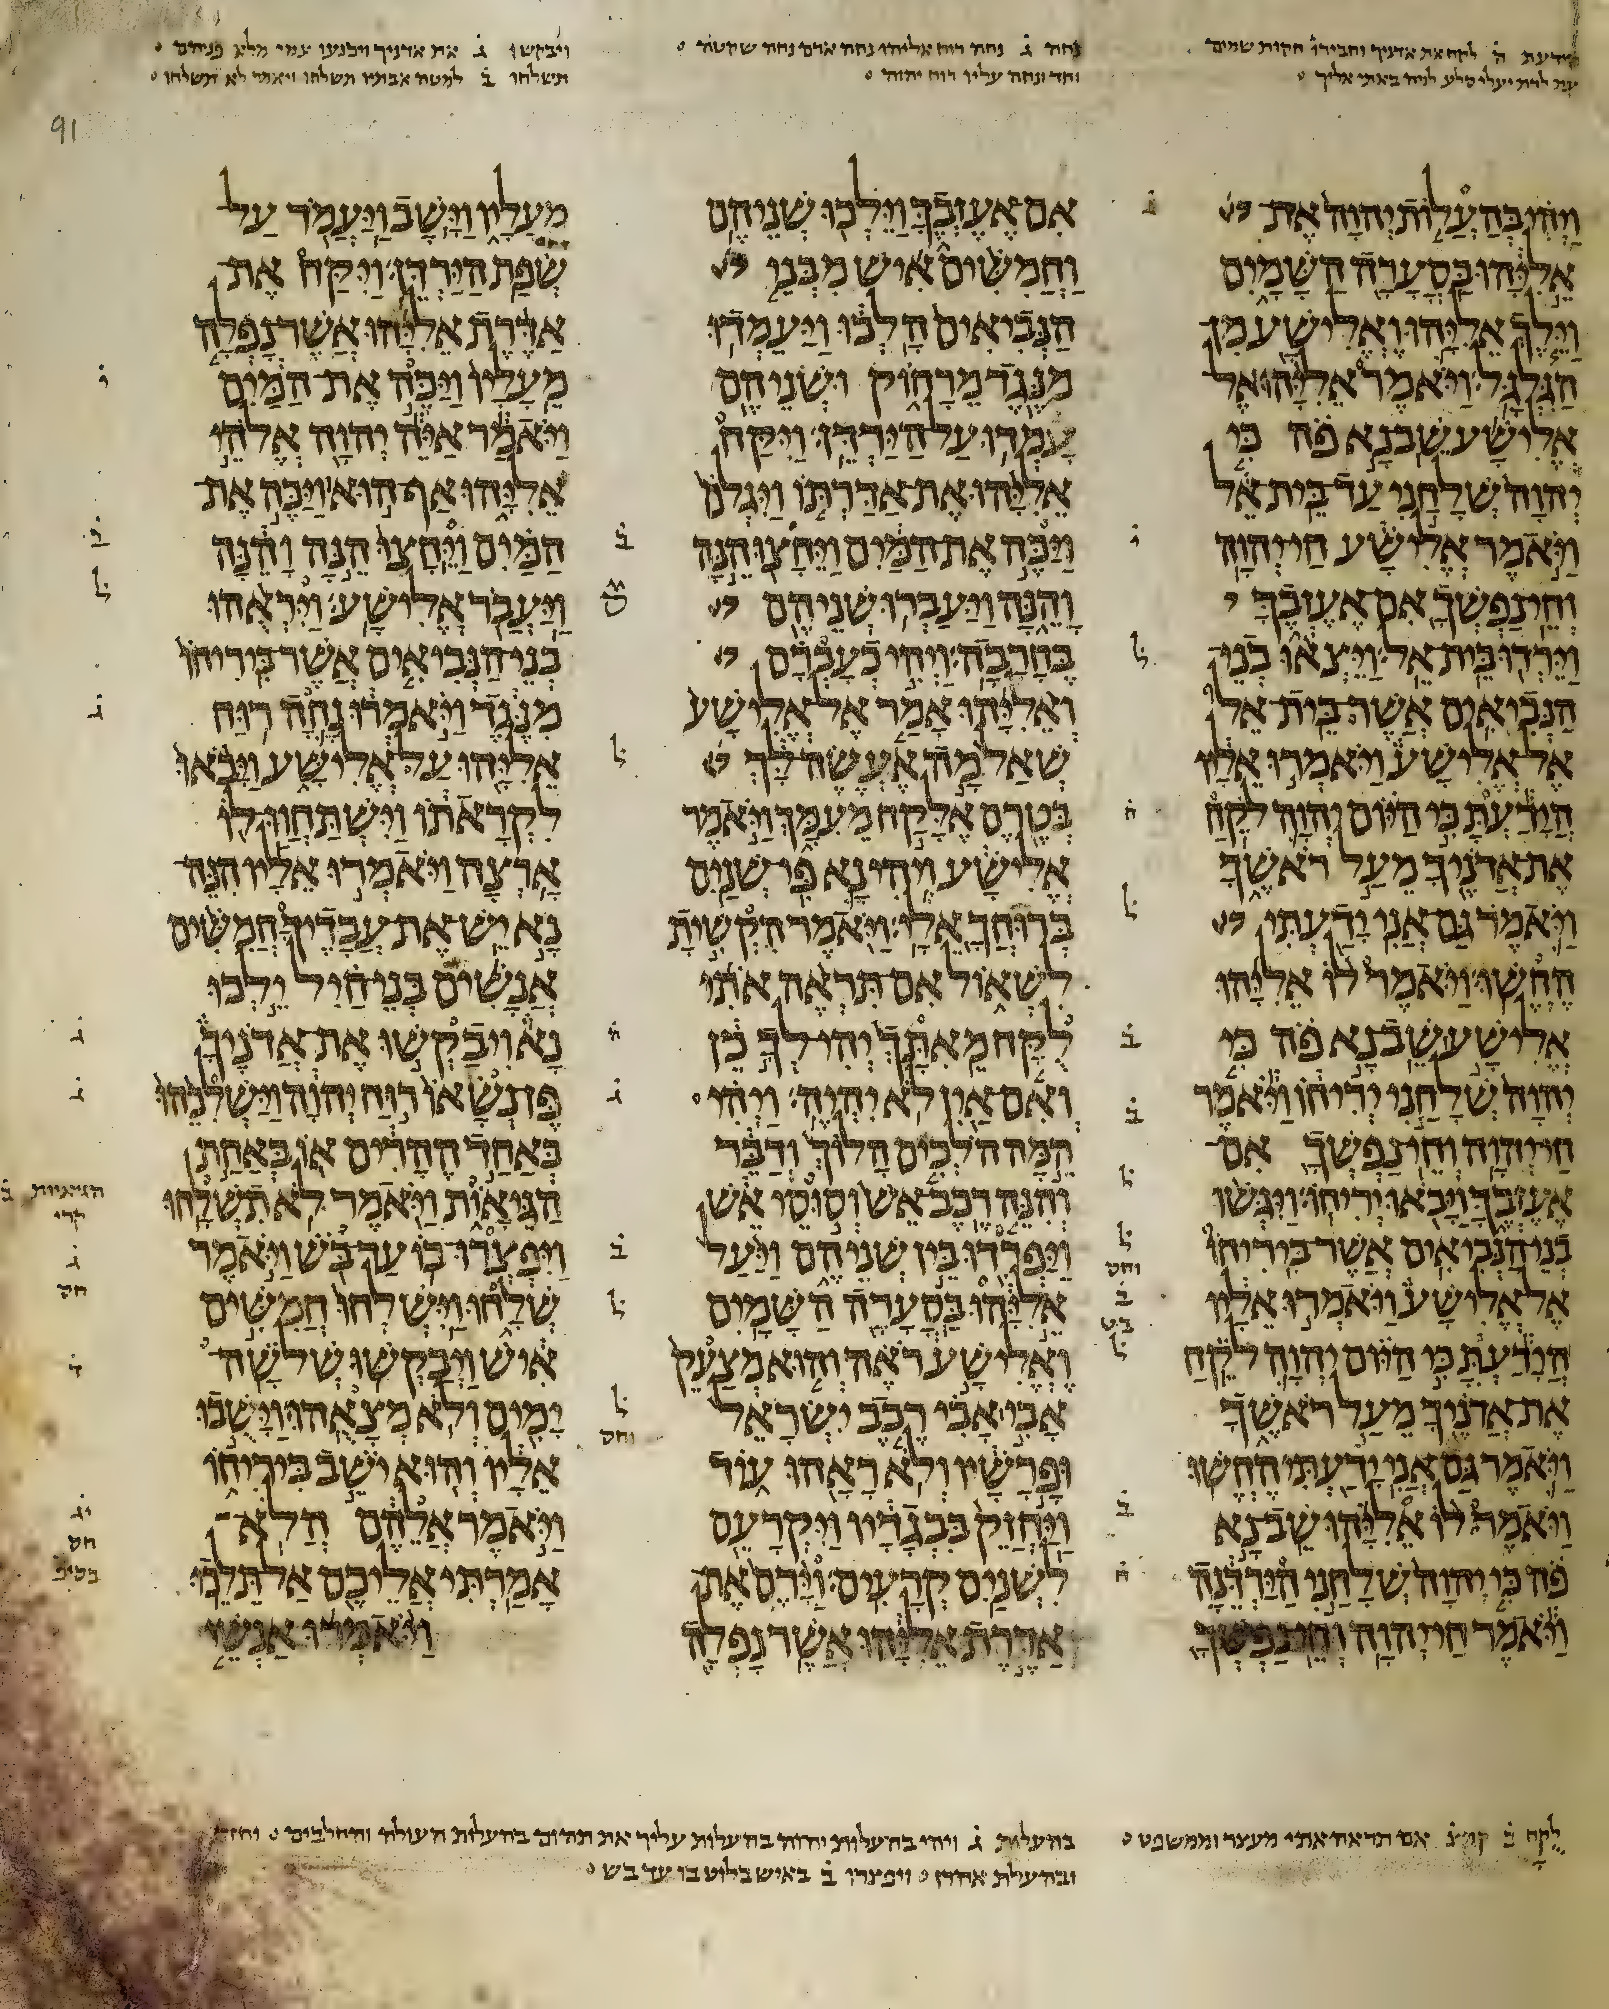 הידעת ה לקח את אדניך וחבירו חקות שמים
עת לדת יעלי סלע לנוח באתי אליך
נחה ג נחה רוח אליהו נחה ארם נחה שקטה
וחד ונחה עליו רוח יהוה
ויבקשו ג את אדניך ויכנעו עמי מלא פניהם
תשלחו ב למטה אבתיו תשלחו ויאמר לא תשלחו
91
ויהי בהעלות יהוה את
אליהו בסערה השמים
וילך אליהו ואלישע מן
הגלגל ויאמר אליהו אל
אלישע שב נא פה כי
יהוה שלחני עד בית אל
ויאמר אלישע חי יהוה
וחי נפשך אם אעזבך
וירדו בית אל ויצאו בני
הנביאים אשר בית אל
אל אלישע ויאמרו אליו
הידעת כי היום יהוה לקח
את אדניך מעל ראשך
ויאמר גם אני ידעתי
החשו ויאמר לו אליהו
אלישע שב נא פה כי
יהוה שלחני יריחו ויאמר
חי יהוה וחי נפשך אם
אעזבך ויבאו יריחו ויגשו
בני הנביאים אשר ביריחו
אל אלישע ויאמרו אליו
הידעת כי היום יהוה לקח
את אדניך מעל ראשך
ויאמר גם אני ידעתי החשו
ויאמר לו אליהו שב נא
פה כי יהוה שלחני הירדנה
ויאמר חי יהוה וחי נפשך
אם אעזבך וילכו שניהם
וחמשים איש מבני
הנביאים הלכו ויעמדו
מנגד מרחוק ושניהם
עמדו על הירדן ויקח
אליהו את אדרתו ויגלם
ויכה את המים ויחצו הנה
והנה ויעברו שניהם
בחרבה ויהי כעברם
ואליהו אמר אל אלישע
שאל מה אעשה לך
בטרם אלקח מעמך ויאמר
אלישע ויהי נא פי שנים
ברוחך אלי ויאמר הקשית
לשאול אם תראה אתי
לקח מאתך יהי לך כן
ואם אין לא יהיה ויהי
המה הלכים הלוך ודבר
והנה רכב אש וסוסי אש
ויפרדו בין שניהם ויעל
אליהו בסערה השמים
ואלישע ראה והוא מצעק
אבי אבי רכב ישראל
ופרשיו ולא ראהו עוד
ויחזק בבגדיו ויקרעם
לשנים קרעים וירם את
אדרת אליהו אשר נפלה
מעליו וישב ויעמד על
שפת הירדן ויקח את
אדרת אליהו אשר נפלה
מעליו ויכה את המים
ויאמר איה יהוה אלהי
אליהו אף הוא ויכה את
המים ויחצו הנה והנה
ויעבר אלישע ויראהו
בני הנביאים אשר ביריחו
מנגד ויאמרו נחה רוח
אליהו על אלישע ויבאו
לקראתו וישתחוו לו
ארצה ויאמרו אליו הנה
נא יש את עבדיך חמשים
אנשים בני חיל ילכו
נא ויבקשו את אדניך
פן נשאו רוח יהוה וישלכהו
באחד ההרים או באחת
הגיאות ויאמר לא תשלחו
ויפצרו בו עד בש ויאמר
שלחו וישלחו חמשים
איש ויבקשו שלשה
ימים ולא מצאהו וישבו
אליו והוא ישב ביריחו
ויאמר אלהם הלא
אמרתי אליכם אל תלכו
ויאמרו אנשי
הגיאיות ב
קרי
לקח ב קמצ אם תראה אתי מעצר וממשפט
בהעלות ג ויהי בהעלות יהוה בהעלות עליך את תהום בהעלות העולה והחלבים וחד
ובהעלת אהרן ויפצרו ב באיש בלוט בו עד בש